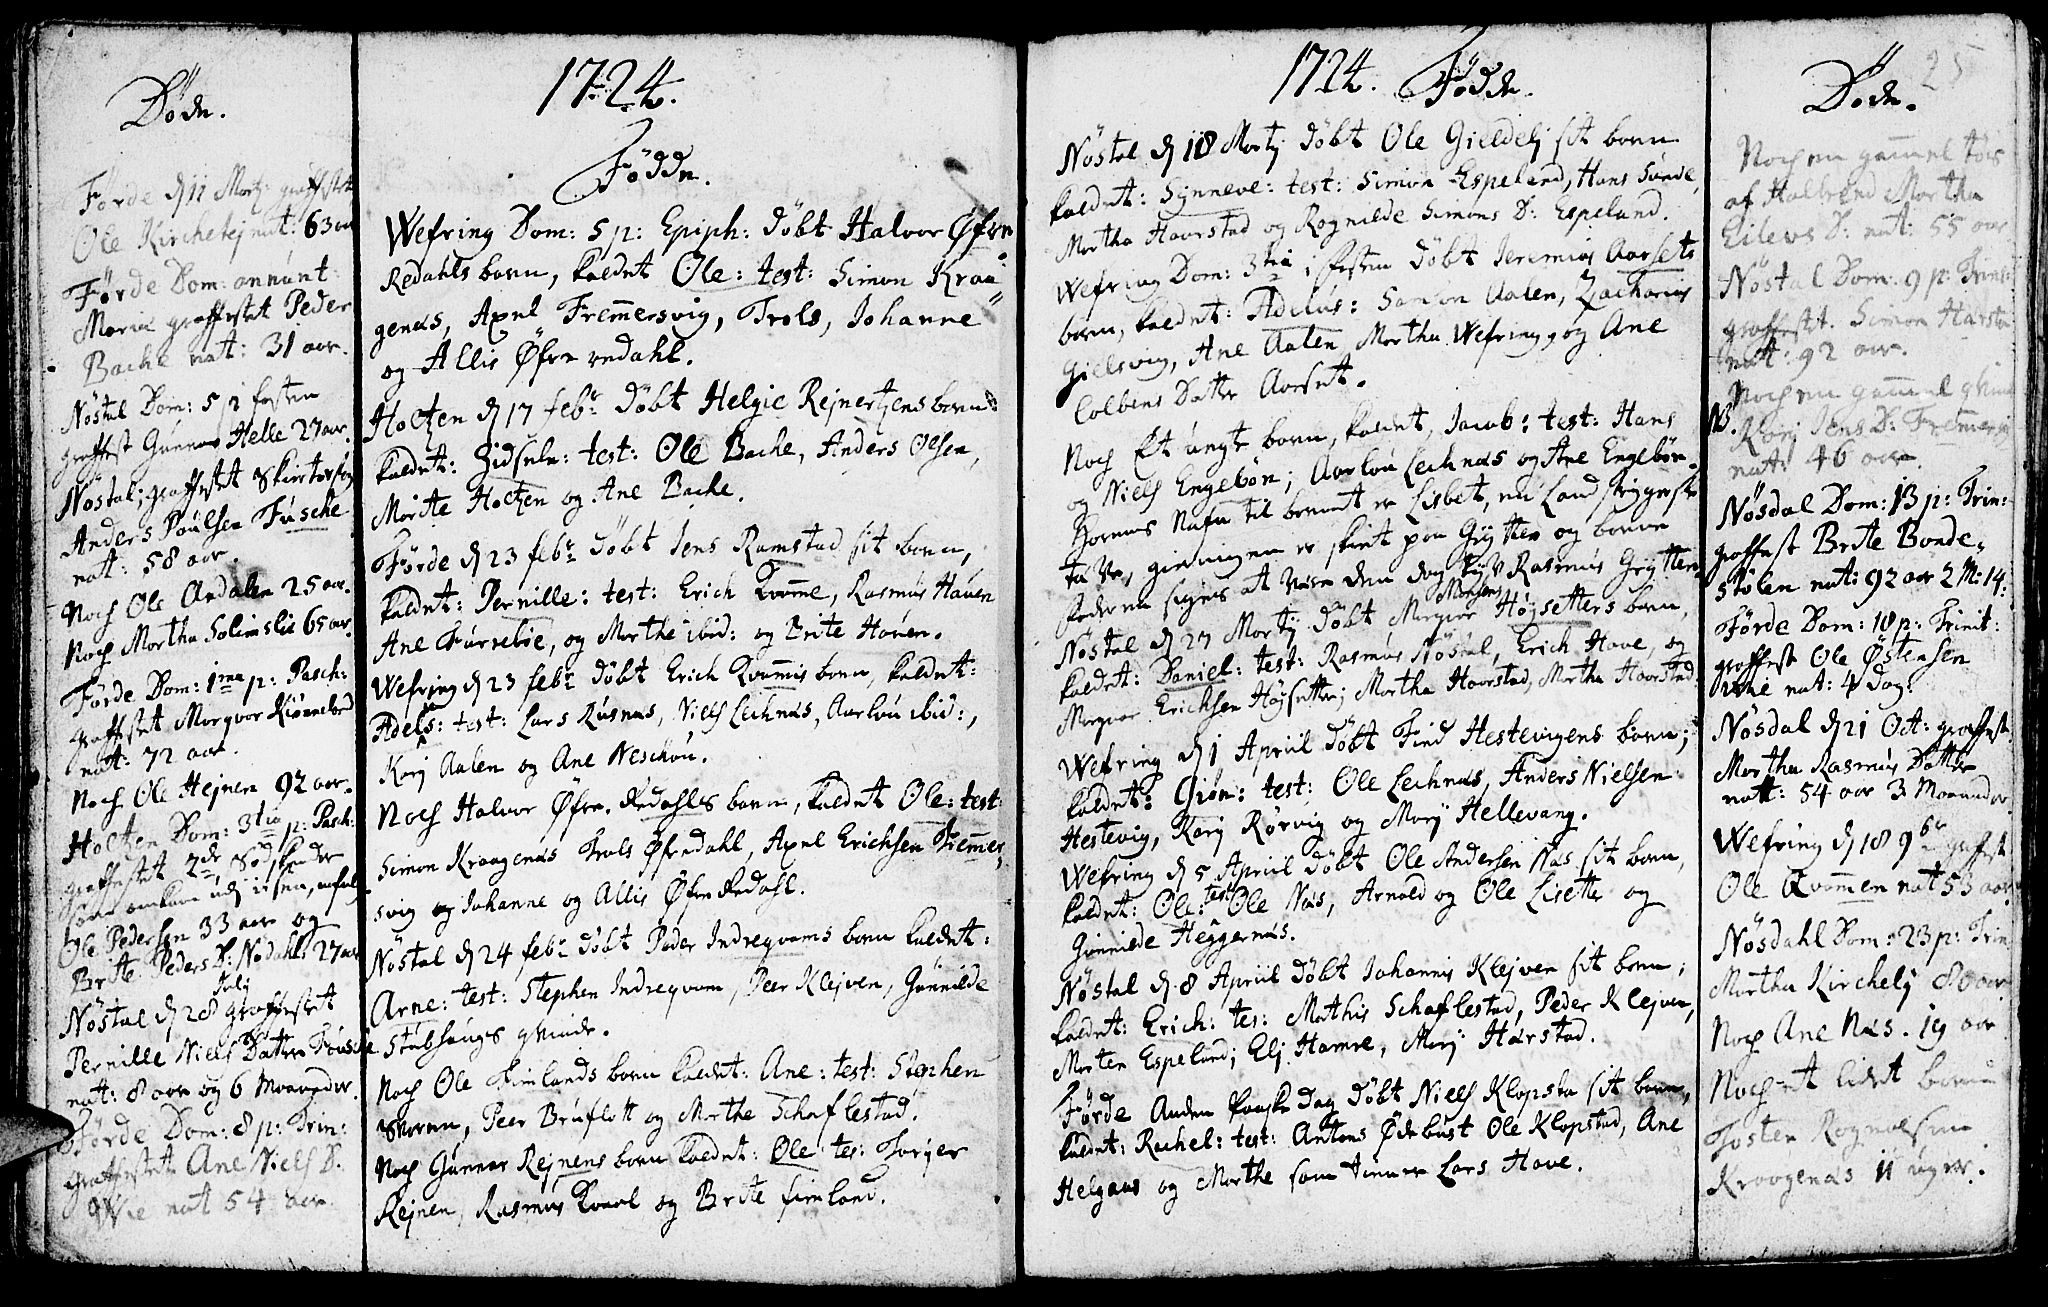 Døde.
Førde d 11 Martj: graffestet
Ole Kirchetej nat: 63 aar
Førde Dom: annunt:
Mariæ graffestet Peder
Bache nat: 31 aar.
Nøstal Dom: 5 i fasten
graffest Gunnar Helle 27 aar.
Nøstal; graffestet Skiertorsdag
Anders Poulsen Fusche
nat: 58 aar.
Noch Ole Andalen 25 aar.
Noch Martha Solimslie 65 aar.
Førde Dom: 1ma p: Pasch:
graffestet Margvor
nat: 72 aar.
Noch Ole Hejnen 92 aar.
Holten Dom: 3tia p: Pasch:
graffestet 2de Sødskende
som omkom udj iisen,
Ole Pedersen 33 aar og
Britte Peders D: Nødahls 27 aar
Nøstal d 28 Julij graffestet
Pernille Niels Datter Fusche
nat: 8 aar og 6 Maaneder.
Førde Dom: 8 p: Trin:
graffestet Ane Niels D.
Wie nat 54 aar.
1724.
Fødde.
Wefring Dom: 5 p: Epiph: døbt Halvor Øfre
Redahls barn, kaldet Ole: test: Simon Kraa
genæs, Axel Fremmersvig, Trols, Johanne
og Allis Øfre redahl.
Holtzen d 17 febr døbt Helgie Rejnertzens barn
kaldet: Zidsele: test: Ole Bache, Anders Olsen,
Marite Holtzen og Ane Bache.
Førde d 23 febr døbt Jens Ramstad sit barn,
kaldet: Pernille: test: Erich Kvamme, Rasmus Hauen
Ane Furseboe, og Marthe ibid: og Brite Hauen.
Wefring d 23 febr døbt Erich Kvammis barn, kaldet:
Adels: test: Lars Rusnæs, Niels Lechnæs, Aarlou ibid:,
Karj Aalen og Ane Neschou.
Noch Halvor Øfre Redahls barn, kaldet Ole: test:
Simon Kraagenæs Trols Øfredahl, Axel Erichsen Fremmer,
svig og Johanne og Allis Øfre Redahl.
Nøstal d 24 febr døbt Peder Indreqvams barn kaldet:
Arne: test: Stephen Indreqvam, Peer Klejven, Gunnilde
Stubhougs qvinde.
Noch Ole Fimlands barn kaldet: Ane: test: Stephen
Skoren, Peer Bruflott og Marthe Schaflestad.
Noch Gunnar Rejnens barn kaldet: Ole tes: Torger
Rejnen, Rasmus Kvaal og Brite fimland.
1724. Fødde.
Nøstal d 18 Martj døbt Ole Gieldelj sit barn
kaldet: Synneve: test: Simon Espeland, Hans Sunde,
Martha Haarstad og Rognilde Simons D: Espeland.
Wefring Dom: 3tia i fasten døbt Jeremias Aarsets
barn, kaldet: Adelus: Samson Aalen, Zacharias
Gielsvig, Ane Aalen Martha Wefring, og Ane
Colbens Datter Aarset.
Noch Et ungt barn, kaldet, Jacob: test: Hans
og Niels Engebøn; Aarlou Lechnæs og Ane Engebøn.
Horens Nafn til barnet er Lisbet, en Landstrygerste
Tøs, gierningen er skeet paa Grytten og barne
faderen siges at være den dog Rasmus Grytten.
Nøstal d 27 Martj døbt Margvor Monsens Høysetters barn,
kaldet: Daniel: test: Rasmus Nøstal, Erich Hove, og
Margvor Erichsen Høysetter; Martha Haarstad, Martha Haarstad.
Wefring d 1 Apriil døbt Find Hestevigens barn;
kaldet: Giøn: test: Ole Lechnæs, Anders Nielsen
Hestevig, Karj Rørvig og Marj Hellevang.
Wefring d 5 Apriil døbt Ole Andersen Næs sit barn,
kaldet: Ole: test: Ole Næs, Arnold og Ole Lisetter og
Gunnilde Heggernæs.
Nøstal d 8 Apriil døbt Johannis Klejven sit barn;
kaldet: Erich: tes: Mathis Schaflestad, Peder Klejven,
Morten Espeland; Elj Hamre, Marj Harstad.
Førde Anden Paaske Dag døbt Niels Klopstad sit barn,
kaldet: Rachel: test: Antons Ødebust Ole Klopstad, Ane
Helgaas og Marthe som tienner Lars Hove.
Døde. 25
Noch en gammel tøs
af Halbrend Martha
Eilevs D: nat: 55 aar
Nøstal Dom: 9 p: Trinit:
graffestet. Simon Harstad
natt: 92 aar.
Noch en gammel qvinde
NB. Karj Jens D: Fremmersvig
nat: 46 aar.
Nøsdal Dom: 13 p: Trin:
graffest Brite Bonde,
stølen nat: 92 aar 2 M: 14:
Førde Dom: 18 p: Trinit:
graffest Ole Østensen
Wie nat: 4 dag:
Nøsdal d 21 Oct: graffest
Martha Rasmus Datter
natt: 54 aar 3 Maaneder
Wefring d 18 9br graffest
Ole Kvammen nat 53 aar
Nøsdahl Dom: 23 p: Trin
Martha Kirchelj 80 aar
Noch Ane Næs. 19 aar
Noch et lidet barn
Tosten Rognalsen
Kraagenæs 11 uger.